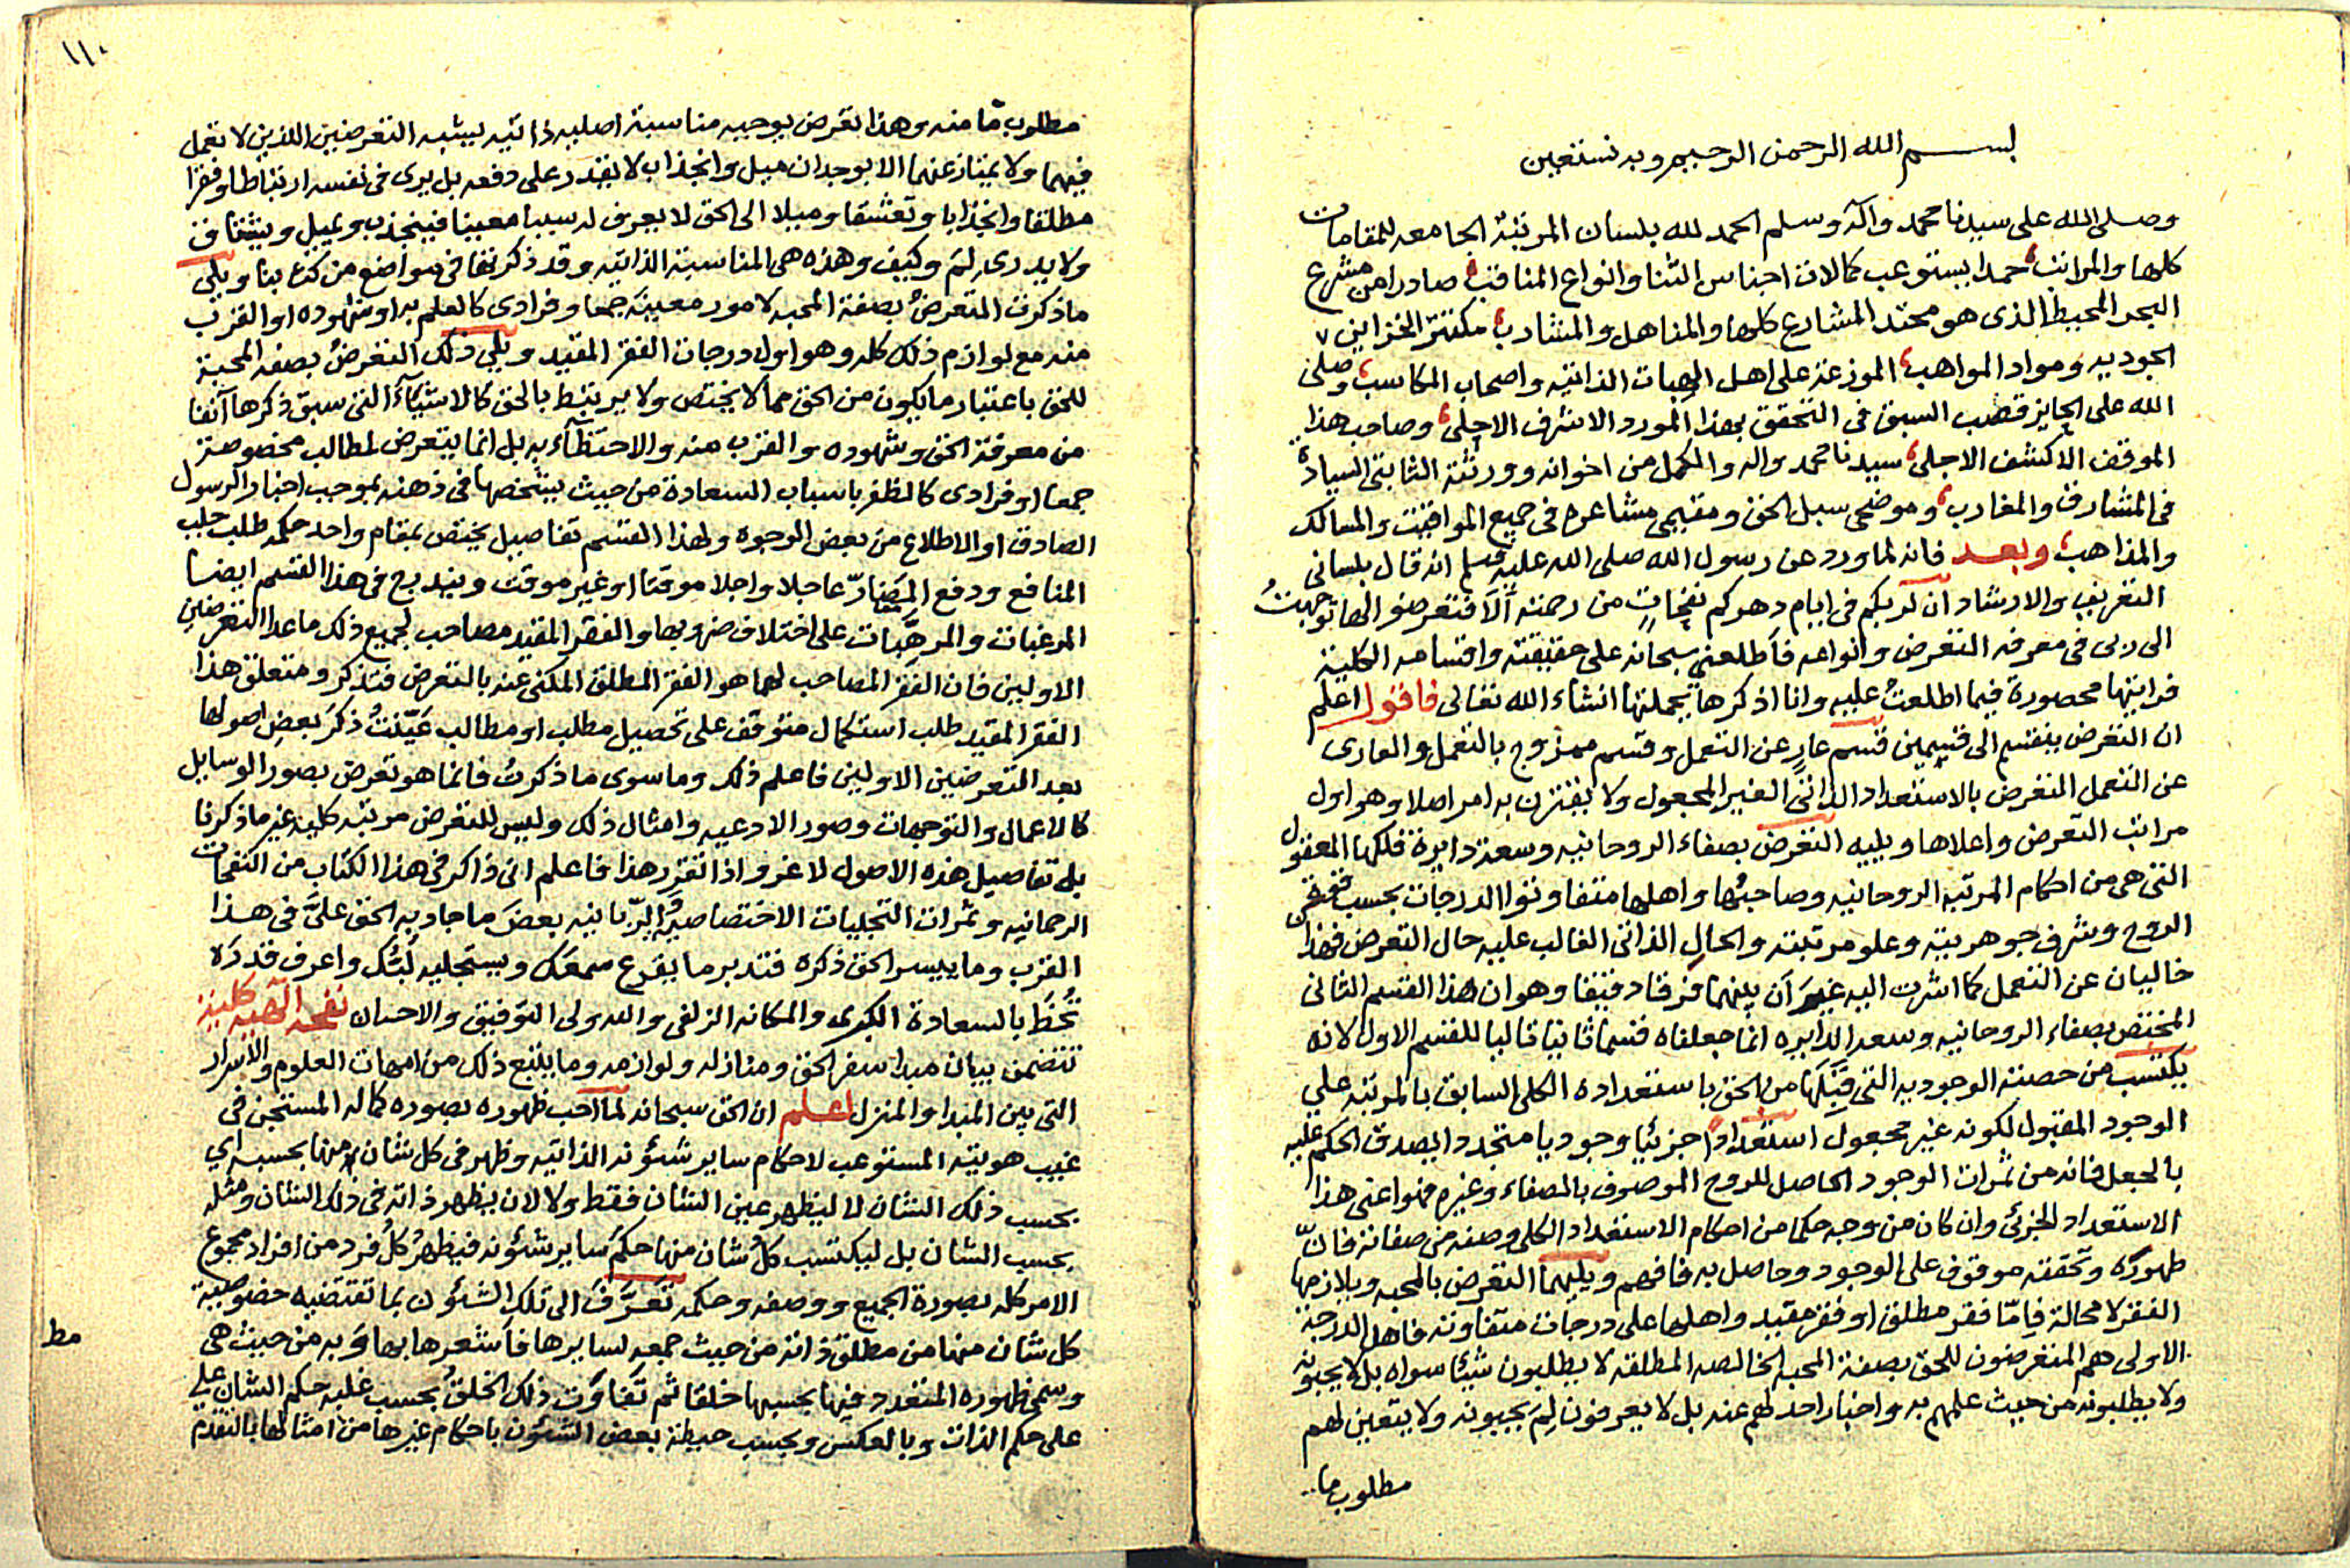 بسم الله الرحمن الرحيم وبه نستعين
وصلى الله على سيدنا محمد وآله وسلم الحمد لله بلسان المرتبة الجامعه للمقامات
كلها والمراتب حمدا يستوعب كمالات اجناس الثنا وانواع المناقب صادرا من مشرع
البحر المحيط الذى هو محتد المشارع كلها والمناهل والمشارب مكتنز الخزاين
الجوديه ومواد المواهب الموزعة على اهل الهبات الذاتيه واصحاب المكاسب وصلى
الله على الحايز قصب السبق فى التحقق بهذا المورد الاشرف الاجلى وصاحب هذا
الموقف الاكشف الاجلى سيدنا محمد واله والكمل من اخوانه وورثته الثابتى السيادة
فى المشارق والمغارب وموضحى سبل الحق ومقيمى مشاعره فى جميع المواقيت والمسالك
والمذاهب وبعد فانه لما ورد عن رسول الله صلى الله عليه وسلم انه قال بلسانى
التعريف والارشاد ان لربكم فى ايام دهركم نفحاتٍ من رحمته ألَا فتعرضوا لها توجهتُ
الى ربى فى معرفه التعرض وانواعه فأطلعنى سبحانه على حقيقته واقسامه الكلية
فرايتها محصورة فيما اطلعتُ عليه وانا اذكرها بجملتها انشاء الله تعالى فاقول اعلم
ان التعرض ينقسم الى قسمين قسم عارٍ عن التعمل وقسم ممزوج بالتعمل والعارى
عن التعمل التعرض بالاستعداد الذاتى الغير المجعول ولا يقترن به امر اصلا وهو اول
مراتب التعرض واعلاها ويليه التعرض بصفاء الروحانيه وسعة دايرة فلكها المعقول
التى هى من احكام المرتبه الروحانيه وصاحبتُها واهلها متفاوتوا الدرجات بحسب
الروح وشرف جوهريته وعلو مرتبته والحال الذاتى الغالب عليه حال التعرض فهذان
خاليان عن التعمل كما اشرت اليه غيرَ أن بينهما فرقا دقيقا وهو ان هذا القسم الثانى
المختص بصفاء الروحانيه وسعة الدايره انما جعلناه قسما ثانيا تاليا للقسم الاول لانه
يكتسب من حصته الوجوديه التى قَبِلَها من الحق باستعداده الكلى السابق بالمرتبه على
الوجود المقبول لكونه غير مجعول استعدادًا جزئيا وجوديا متجددا يصدق الحكم عليه
بالجعل فانه من ثمرات الوجود الحاصل للروح الموصوف بالصفاء وغيره فهو اعنى هذا
الاستعداد الجزئى وان كان من وجه حكما من احكام الاستعداد الكلى وصفه من صفاته فانّ
ظهوره وتحققه موقوف على الوجود وحاصل به فافهم ويليهما التعرض بالمحبه ويلازمها
الفقر لا محالة فإمّا فقر مطلق او فقر مقيد واهلها على درجات متفاوته فاهل الدرجة
الاولى هم المتعرضون للحق بصفة المحبه الخالصه المطلقه لا يطلبون شيئا سواه بل لا يحبونه
ولا يطلبونه من حيث علمهم به واخبار احد لهم عنه بل لا يعرفون لِمَ يحبونه ولا يتعين لهم
مطلوب ما
١١٠
مطلوب مّا منه وهذا تعرض يوجبه مناسبة اصليه ذاتيه يشبه التعرضين اللذين لا تعمل
فيهما ولا يمتاز عنهما الا بوجدان ميل وانجذاب لا يقدر على دفعه بل يرى فى نفسه ارتباطا وفقرا
مطلقا وانجذابا وتعشقا وميلا الى الحق لا يعرف له سببا معينا فينجذب ويميل ويشتاق
ولا يدرى لِمَ وكيف وهذه هى المناسبة الذاتيه وقد ذكرتها فى مواضع من كتابنا ويلى
ما ذكرت المتعرضُ بصفة المحبه لامور معينة جمعا وفرادى كالعلم به او شهوده او القرب
منه مع لوازم ذلك كله وهو اول درجات الفقر المقيد ويلى ذلك التعرضُ بصفه المحبة
للحق باعتبار ما يكون من الحق مما لا يختص ولا يرتبط بالحق كالاشياء التى سبق ذكرها آنفا
من معرفة الحق وشهوده والقرب منه والاحتظآء به بل انما يتعرض لمطالب مخصوصة
جمعا او فرادى كالظفر باسباب السعادة من حيث يتشخصها فى ذهنه بموجب اخبار الرسول
الصادق او الاطلاع من بعض الوجوه ولهذا القسم تفاصيل يختص بمقام واحد حكمه طلب جلب
المنافع ودفع المضارّ عاجلا واجلا موقتا او غير موقت ويندرج فى هذا القسم ايضا
المرغبات والمرهّبات على اختلاف ضروبها والفقر المقيد مصاحب لجميع ذلك ما عدا التعرضين
الاولين فان الفقر المصاحب لهما هو الفقر المطلق المكنى عنه بالتعرض فتذكر ومتعلق هذا
الفقر المقيد طلب استكمال متوقف على تحصيل مطلب او مطالب عَيّنْتُ ذكرَ بعضِ اصولها
بعد التعرضين الاولين فاعلم ذلك وما سوى ما ذكرتُ فانما هو تعرض بصور الوسايل
كالاعمال والتوجهات وصور الادعيه وامثال ذلك وليس للتعرض مرتبه كلية غير ما ذكرنا
بل تفاصيل هذه الاصول لا غر واذا تقرر هذا فاعلم انى ذاكر فى هذا الكتاب من النفحات
الرحمانيه وثمرات التجليات الاختصاصية الربانيه بعضَ ما جاد به الحق علىَّ فى هذا
القرب وما ييسر الحق ذكره فتدبر ما يقرع سمعَك ويستجليه لُبُّك واعرف قدرَه
تُحْظَ بالسعادة الكبرى والمكانه الزلفى والله ولى التوفيق والاحسان نفحه الٓهيه كلية
تتضمن بيان مبدا سفر الحق ومنازله ولوازمه وما يتبع ذلك من امهات العلوم والاسرار
التى بين المبدا والمنزل اعلم ان الحق سبحانه لما احب ظهوره بصوره كماله المستجن فى
غيب هويته المستوعب لاحكام ساير شئونه الذاتيه وظهر فى كل شان منها بحسبه اي
بحسب ذلك الشان لا ليظهر عين الشان فقط ولا لان يظهر ذاته فى ذلك الشان ومثله
بحسب الشان بل ليكتسب كلُ شان منها حكمَ ساير شئونه فيظهرُ كلُ فرد من افراد مجموع
الامر كله بصورة الجميع ووصفه وحكمه تَعَرَّفَ الى تلك الشئون بما تقتضيه خصوصية
كل شان منها من مطلق ذاته من حيث جمعه لسايرها فأشعرها بها وَبه من حيث هى
مط
وسمى ظهوره المتعدد فيها بحسبها خلقا ثم تفاوت ذلك الخلقُ بحسب غلبه حكم الشان على
على حكم الذات وبالعكس وبحسب حيطة بعض الشئون باحكام غيرها من امثالها بالتقدم